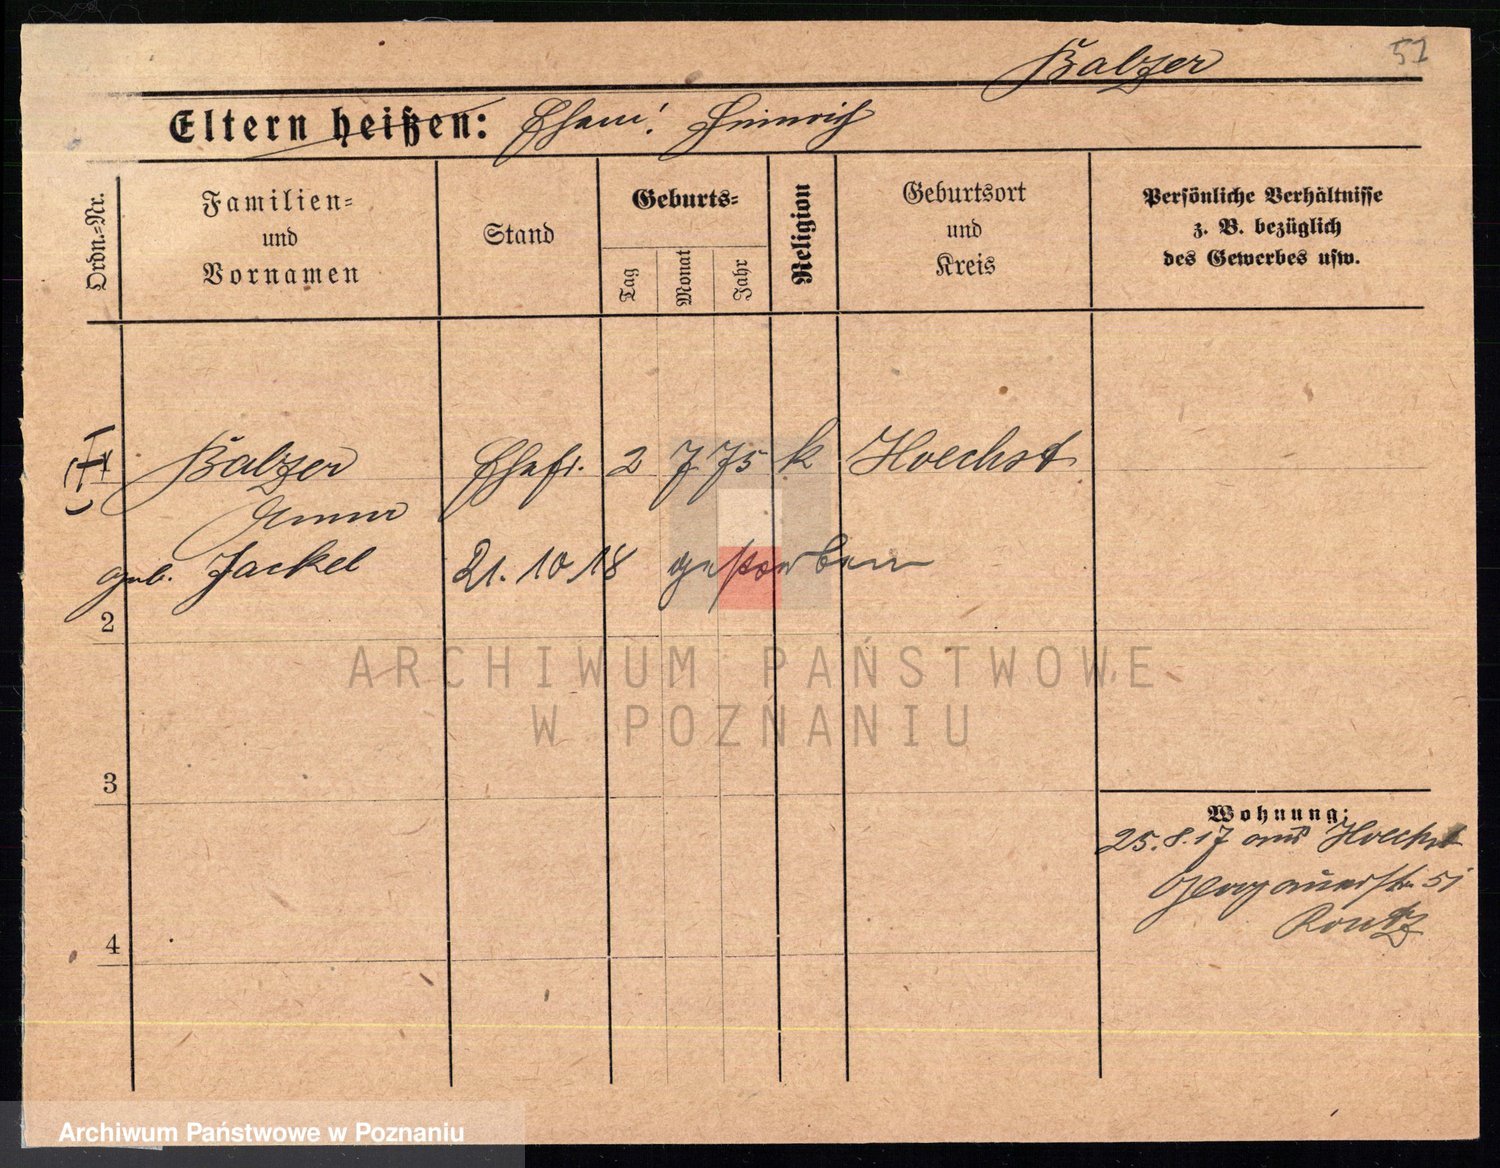 Balzer 51
Eltern heißen: Ehem: Heinrich
Ordn.-Nr.
Familien-
und
Vornamen
Stand
Geburts-
Tag
Monat
Jahr
Religion
Geburtsort
und
Kreis
Persönliche Verhältnisse
z. B. bezüglich
des Gewerbes usw.
Balzer Ehefr. 2 7 75 k Hoechst
Anna
geb. Jackel 21. 10. 18 gestorben
2
ARCHIWUM PAŃSTWOWE
W POZNANIU
3
Wohnung:
25. 8. 17 aus Hoechst
Glogauerstr. 51
4
Archiwum Państwowe w Poznaniu